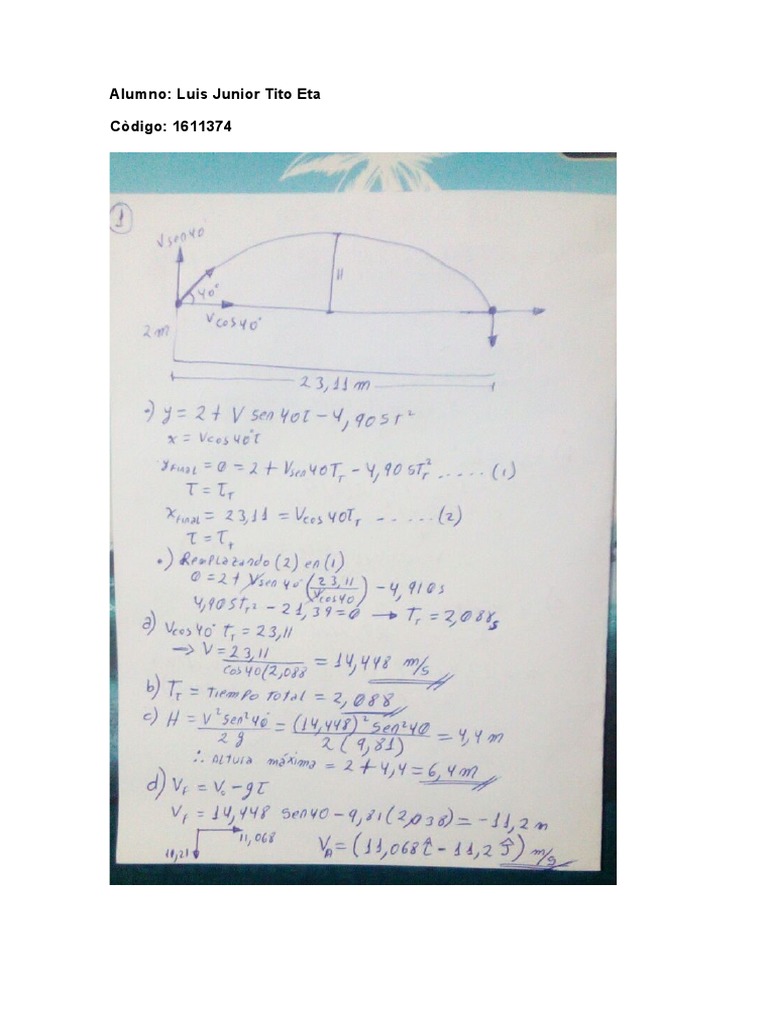 Alumno: Luis Junior Tito Eta
Còdigo: 1611374
1
Vsen40°
40°
H
Vcos40°
2m
23,11m
•) y = 2 + V sen40t - 4,905t²
x = Vcos40°t
yfinal = 0 = 2 + Vsen40Tт - 4,905Tт² ..... (1)
τ = τт
xfinal = 23,11 = Vcos40Tт ...... (2)
τ = τт
•) Remplazando (2) en (1)
0 = 2 + Vsen40°(23,11/Vcos40) - 4,910s
4,905Tт² - 21,39 = 0 → Tт = 2,088s
a) Vcos40° Tт = 23,11
→ V = 23,11/cos40(2,088 = 14,448 m/s
b) Tт = Tiempo total = 2,088
c) H = V²sen²40°/2g = (14,448)²sen²40/2(9,81) = 4,4m
∴ Altura máxima = 2 + 4,4 = 6,4m
d) Vf = Vo - gt
Vf = 14,448 sen40 - 9,81(2,038) = -11,2 m
11,068
11,21
VA = (11,068î - 11,2ĵ) m/s